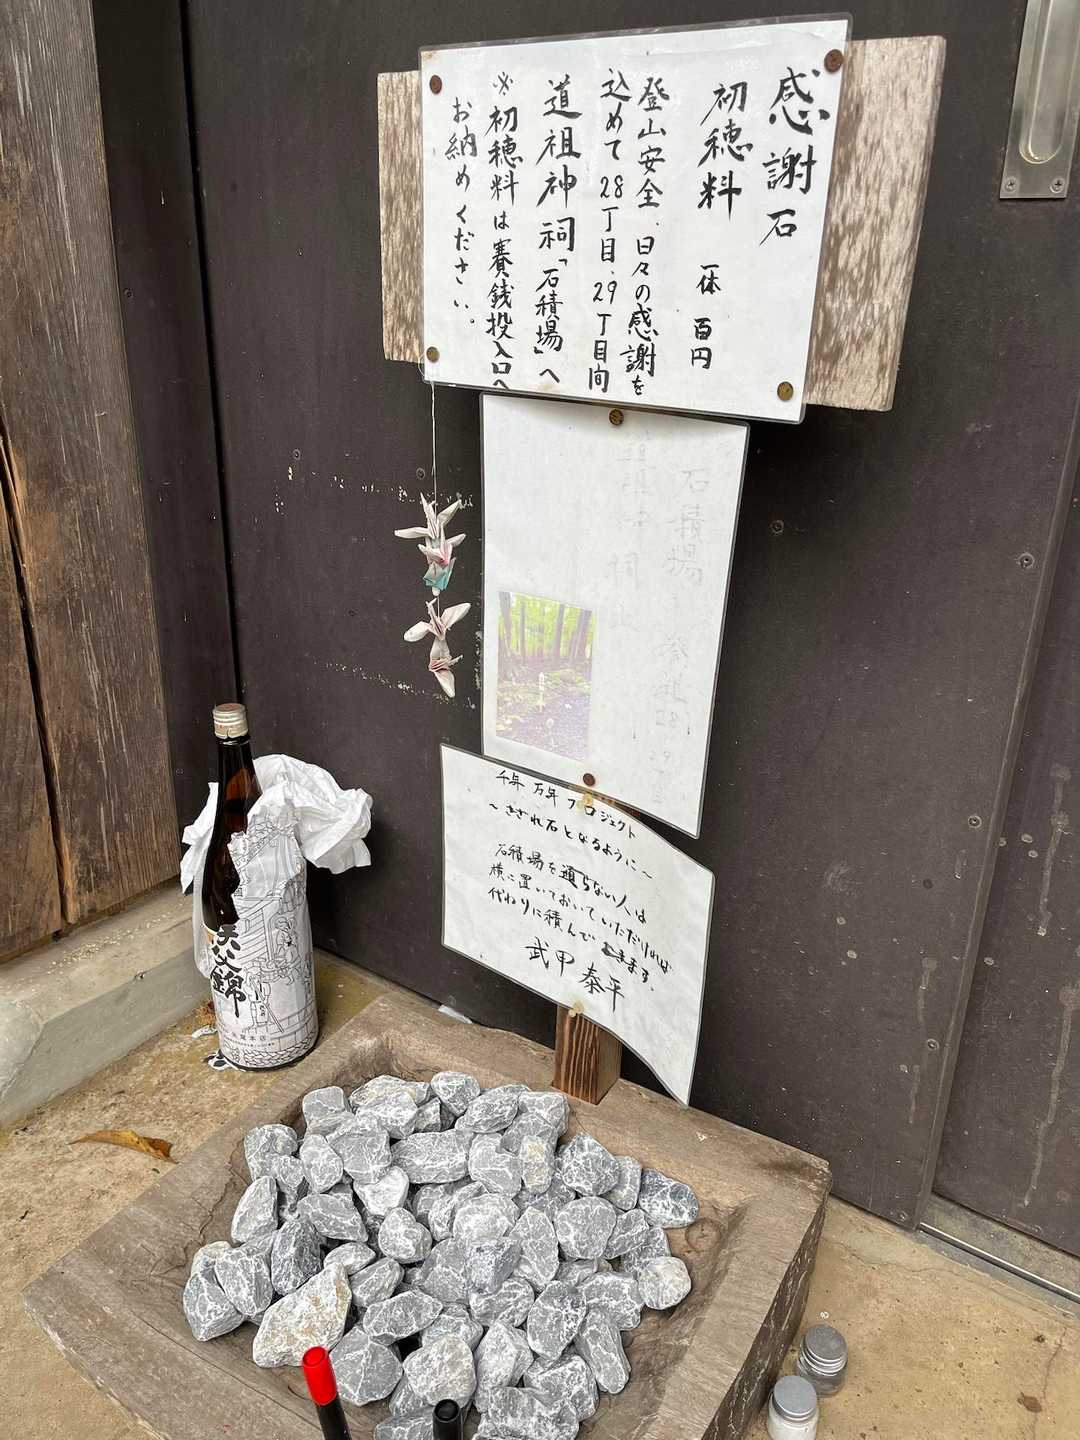 感謝石
初穂料 一体 百円
登山安全、日々の感謝を
込めて28丁目、29丁目間
道祖神 祠「石積場」へ
※初穂料は賽銭投入口へ
お納めください。
石積場
千年 万年 プロジェクト
～さざれ石となるように～
石積場を通らない人は
横に置いておいていただければ
代わりに積んできます。
武甲 泰平
秩父錦